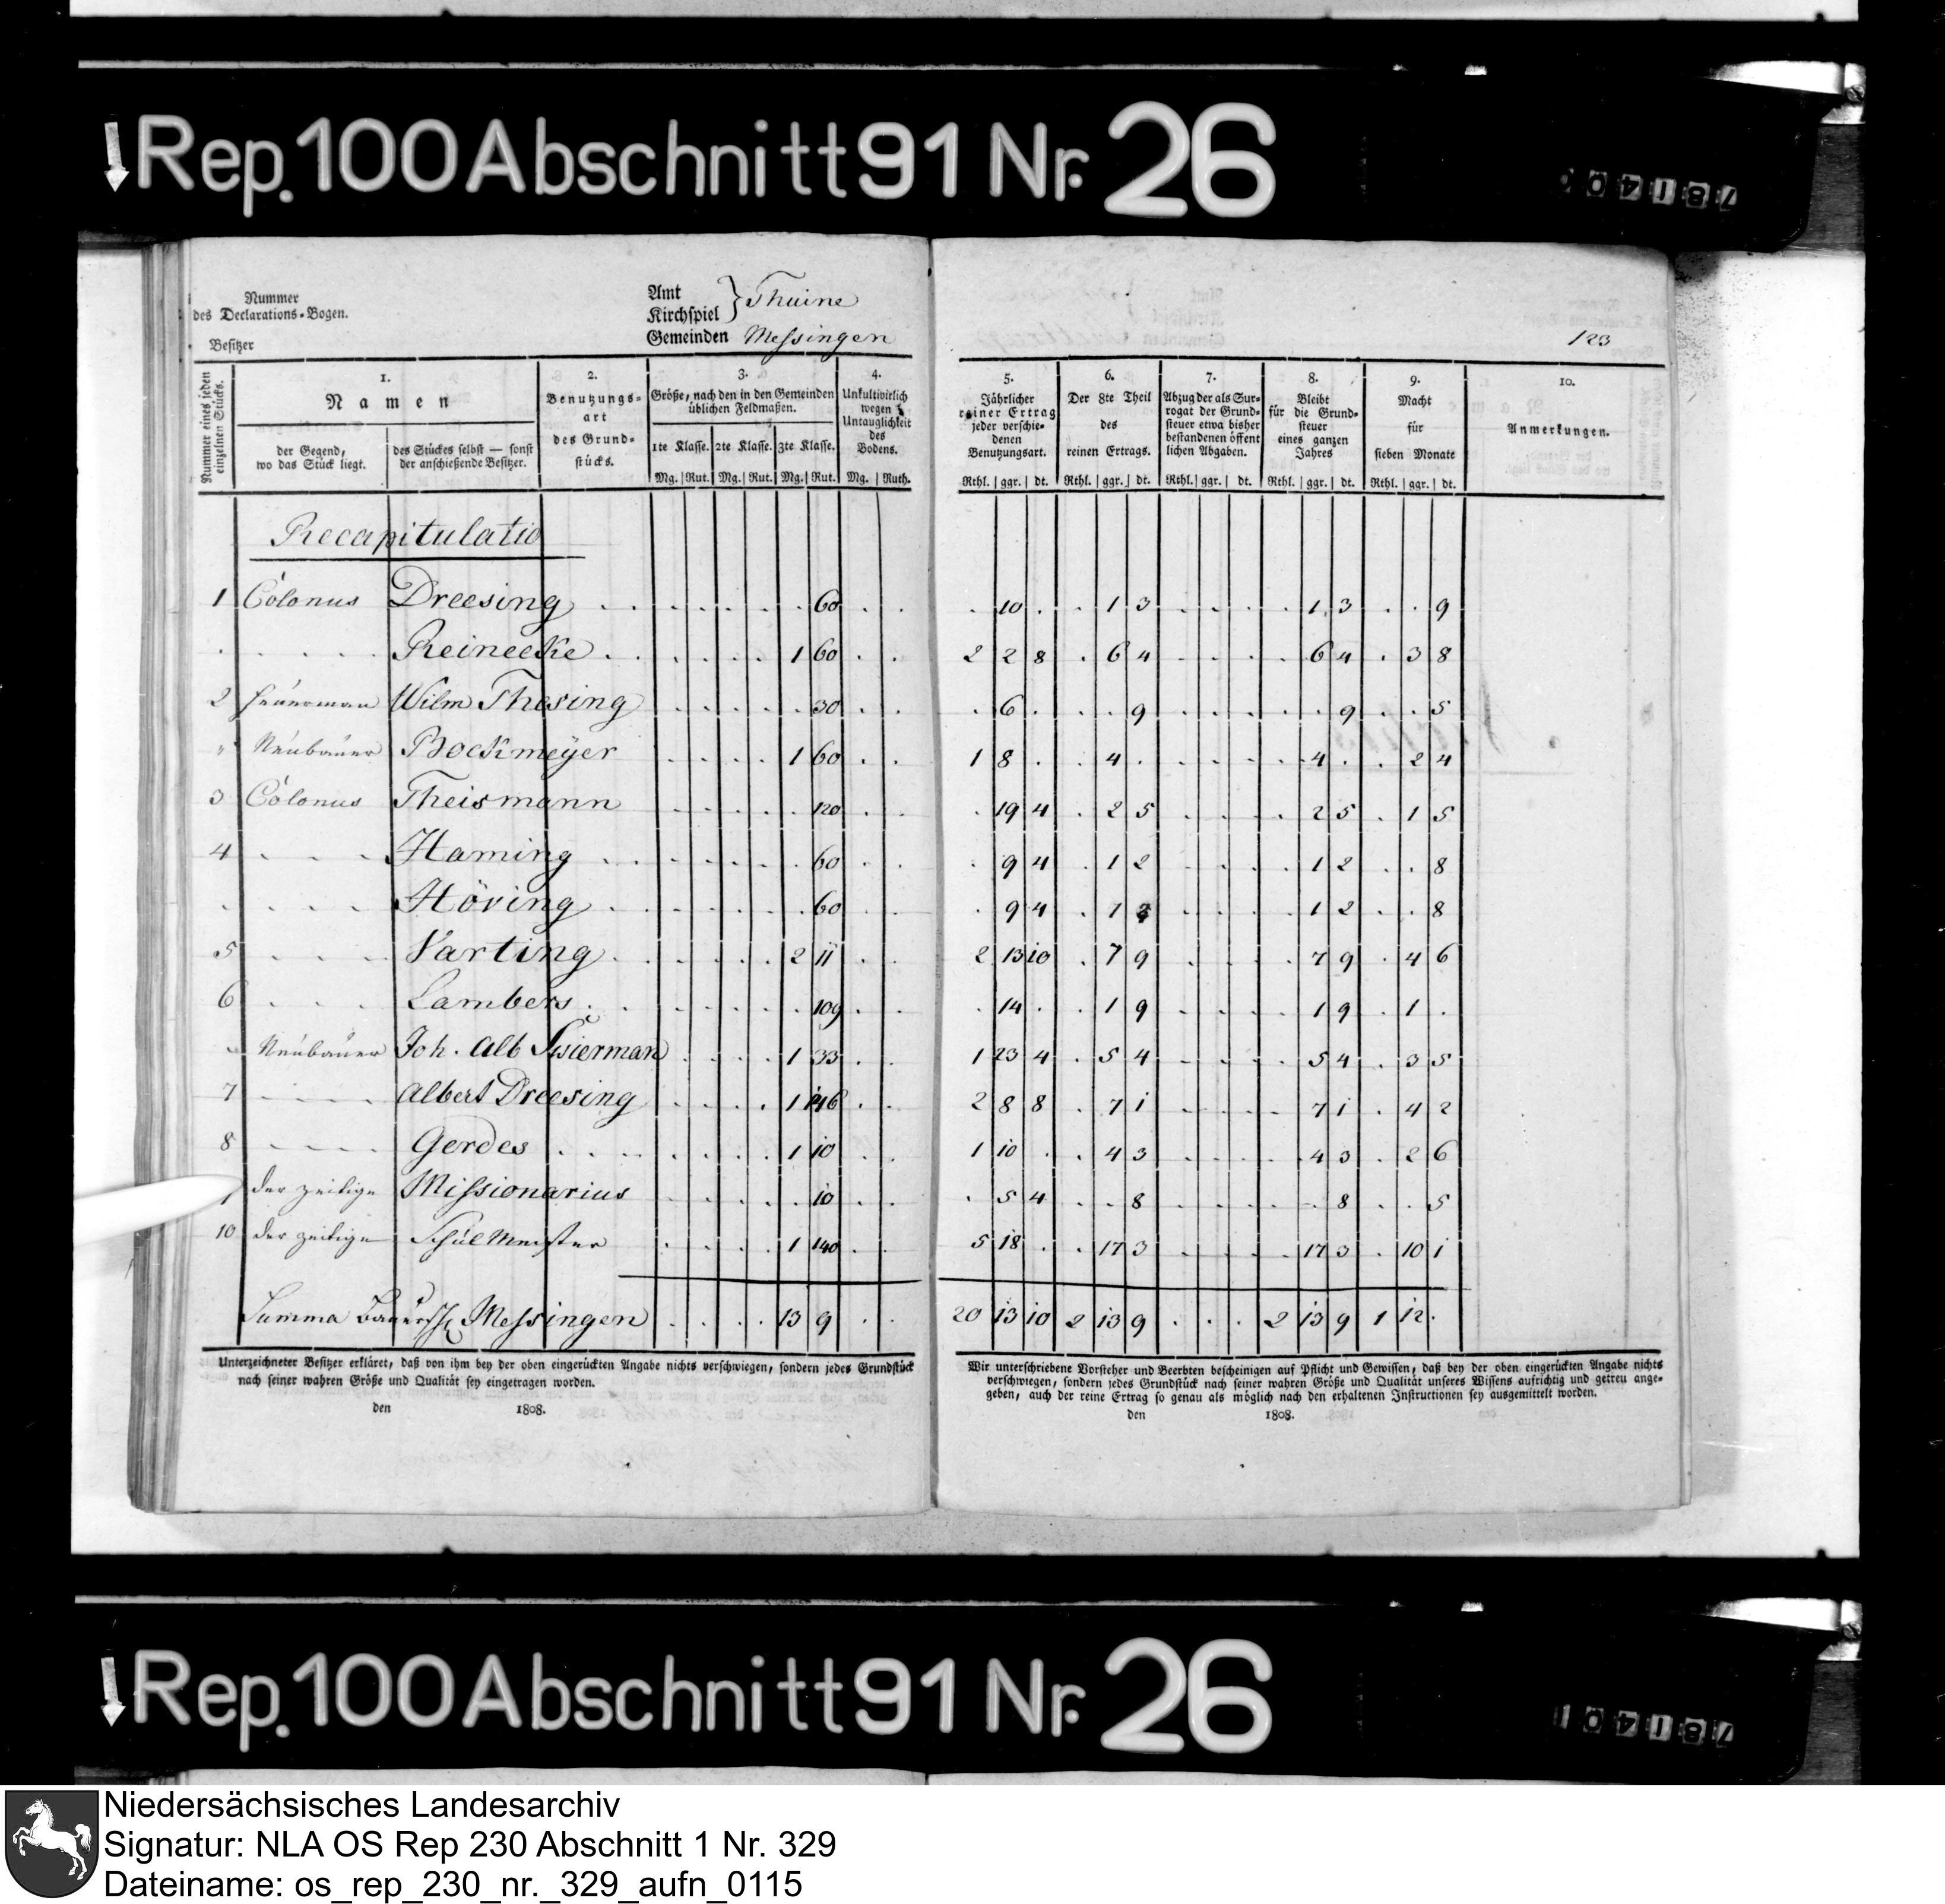 Rep. 100 Abschnitt 91 Nr. 26
Nummer
des Declarations-Bogen.
Besitzer
Amt
Kirchspiel } Thuine
Gemeinden Messingen
123
Nummer eines jeden einzelnen Stücks.
1. Namen
der Gegend, wo das Stück liegt.
des Stückes selbst — sonst der anschießende Besitzer.
2. Benutzungsart des Grundstücks.
3. Größe, nach den in den Gemeinden üblichen Feldmaßen.
1te Klasse. 2te Klasse. 3te Klasse.
Mg. Rut. Mg. Rut. Mg. Rut.
4. Unkultivirlich wegen Untauglichkeit des Bodens.
Mg. Ruth.
5. Jährlicher reiner Ertrag jeder verschiedenen Benutzungsart.
Rthl. ggr. dt.
6. Der 8te Theil des reinen Ertrags.
Rthl. ggr. dt.
7. Abzug der als Surrogat der Grundsteuer etwa bisher bestandenen öffentlichen Abgaben.
Rthl. ggr. dt.
8. Bleibt für die Grundsteuer eines ganzen Jahres
Rthl. ggr. dt.
9. Macht für sieben Monate
Rthl. ggr. dt.
10. Anmerkungen.
Recapitulatio
1 Colonus Dreesing . . . 60 . . . 10 . . 1 3 . . . . 1 3 . . 9
. . . . Reinecke . . . 1 60 . . 2 2 8 . 6 4 . . . . 6 4 . 3 8
2 Heuerman Wilm Thesing . . . 30 . . . 6 . . . 9 . . . . . 9 . . 5
" Neubauer Bockmeyer . . . 1 60 . . 1 8 . . 4 . . . . . 4 . . 2 4
3 Colonus Theismann . . . 120 . . . 19 4 . 2 5 . . . . 2 5 . 1 5
4 . . . Haming . . . 60 . . . 9 4 . 1 2 . . . . 1 2 . . 8
. . . . Höving . . . 60 . . . 9 4 . 1 2 . . . . 1 2 . . 8
5 . . . Varting . . . 2 11 . . 2 13 10 . 7 9 . . . . 7 9 . 4 6
6 . . . Lambers . . . 109 . . . 14 . . 1 9 . . . . 1 9 . 1 .
. Neubauer Joh. Alb . . . 1 33 . . 1 23 4 . 5 4 . . . . 5 4 . 3 5
7 . . . Albert Dreesing . . . 1 146 . . 2 8 8 . 7 1 . . . . 7 1 . 4 2
8 . . . Gerdes . . . 1 10 . . 1 10 . . 4 3 . . . . 4 3 . 2 6
der zeitige Missionarius . . . 10 . . . 5 4 . . 8 . . . . . 8 . . 5
10 der zeitige Schulmeister . . . 1 140 . . 5 18 . . 17 3 . . . . 17 3 . 10 1
Summa Bauersch. Messingen . . . . 13 9 . . 20 13 10 2 13 9 . . . 2 13 9 1 12 .
Unterzeichneter Besitzer erkläret, daß von ihm bey der oben eingerückten Angabe nichts verschwiegen, sondern jedes Grundstück
nach seiner wahren Größe und Qualität sey eingetragen worden.
den 1808.
Wir unterschriebene Vorsteher und Beerbten bescheinigen auf Pflicht und Gewissen, daß bey der oben eingerückten Angabe nichts
verschwiegen, sondern jedes Grundstück nach seiner wahren Größe und Qualität unseres Wissens aufrichtig und getreu ange-
geben, auch der reine Ertrag so genau als möglich nach den erhaltenen Instructionen sey ausgemittelt worden.
den 1808.
Rep. 100 Abschnitt 91 Nr. 26
Niedersächsisches Landesarchiv
Signatur: NLA OS Rep 230 Abschnitt 1 Nr. 329
Dateiname: os_rep_230_nr._329_aufn_0115